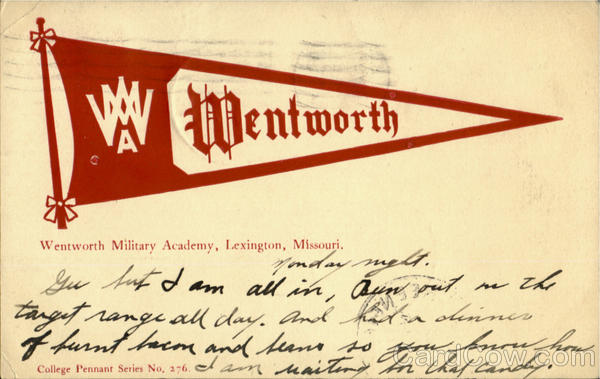 WMA
Wentworth
Wentworth Military Academy, Lexington, Missouri.
Monday night.
Gee but I am all in, Been out on the
target range all day. And had a dinner
of burnt bacon and beans so you know how
College Pennant Series No, 276.
I am waiting for that candy.
CardCow.com